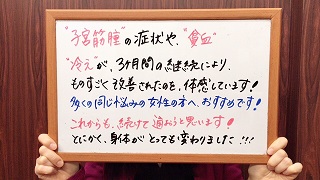 "子宮筋腫"の症状や、"貧血"
"冷え"が、3ヶ月の継続により、
ものすごく改善されたのを、体感しています!
多くの同じ悩みの女性の方へ、おすすめです!
これからも、続けて通おうと思います!
とにかく、身体がとっても変わりました…!!!